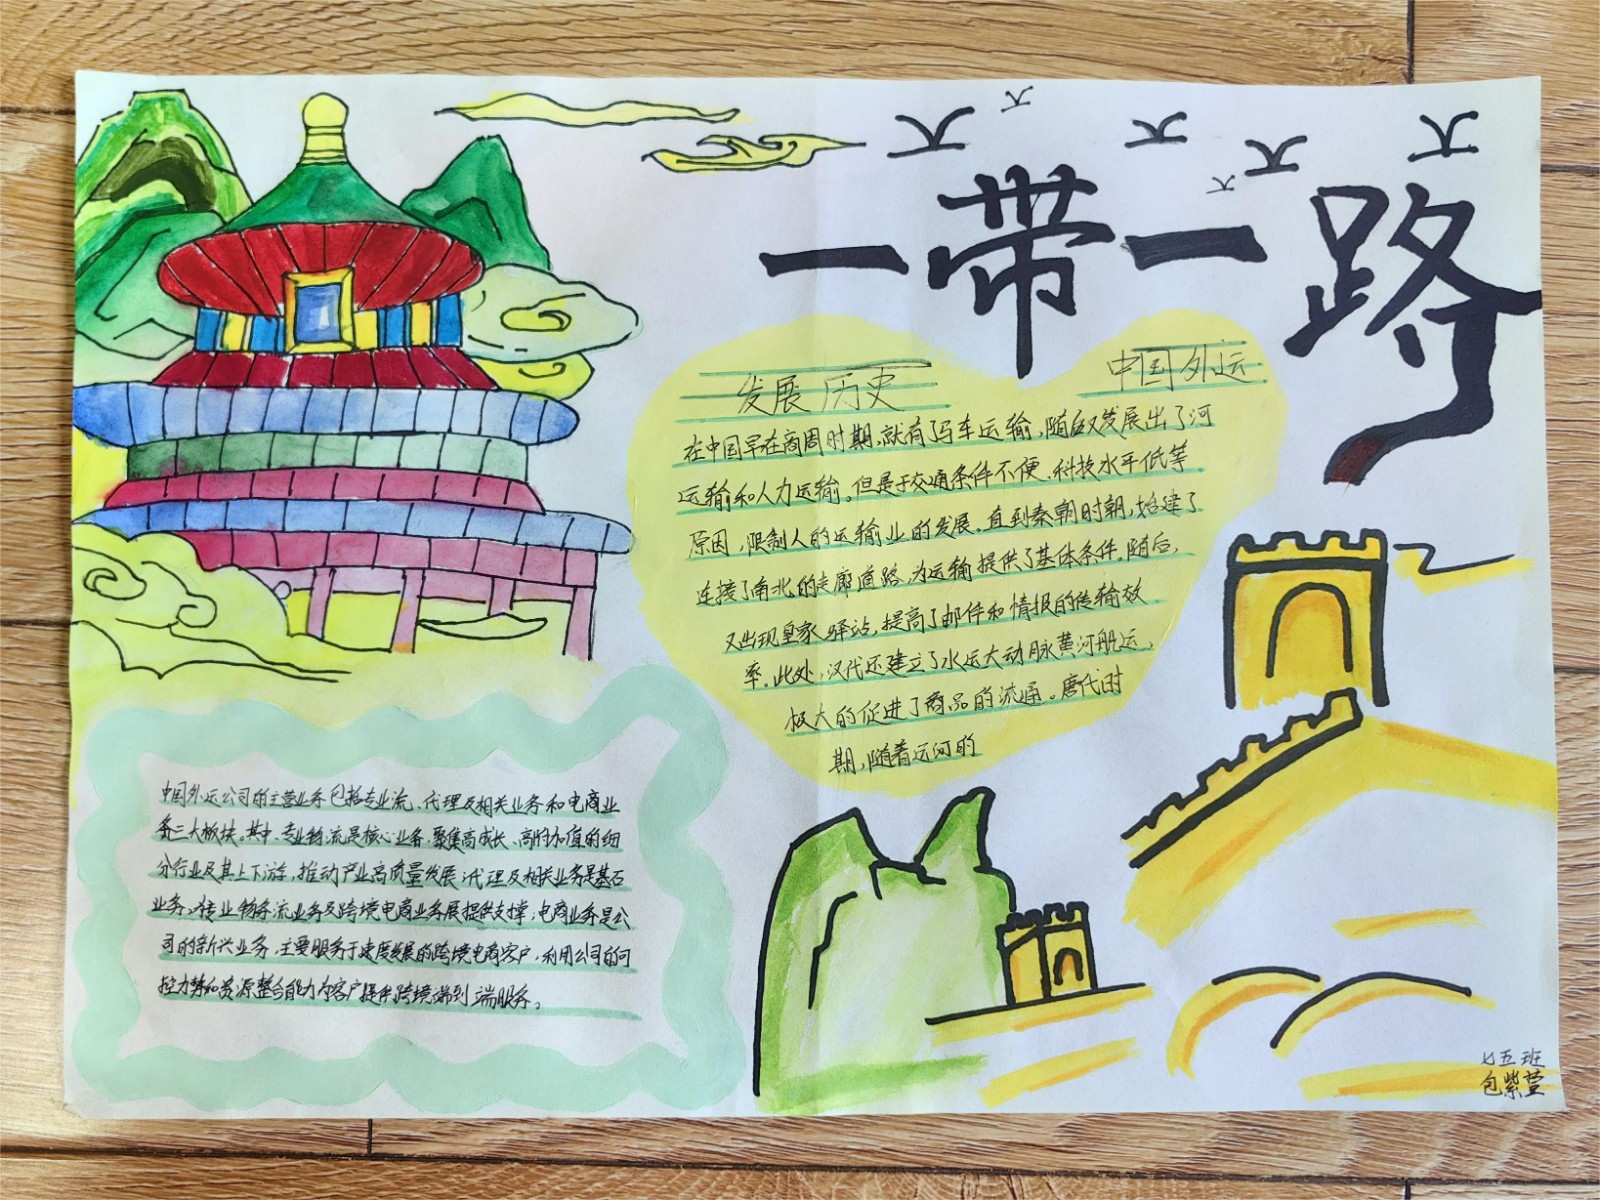 一带一路
发展历史
中国外运
在中国早在商周时期,就有了马车运输,随后又发展出了河
运输和人力运输。但是于交通条件不便、科技水平低等
原因,限制人的运输业的发展。直到秦朝时朝,始建了
连接了南北的走廊道路,为运输提供了基体条件。随后,
又出现皇家驿站,提高了邮件和情报的传输效
率。此处,汉代还建立了水运大动脉黄河航运,
极大的促进了商品的流通。唐代时
期,随着运河的
中国外运公司的主营业务包括专业流、代理及相关业务和电商业
务三大板块。其中、专业物流是核心业务,聚集高成长、高附加值的细
分行业及其上下游,推动产业高质量发展;代理及相关业务是基石
业务。专业物务流业务及跨境电商业务展提供支撑;电商业务是公
司的新兴业务,主要服务于速度发展的跨境电商客户,利用公司的可
控力势和资源整合能力为客户提供跨境端到端服务。
七五班
包紫萱